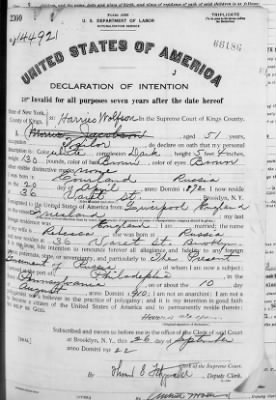 2300
U. S. DEPARTMENT OF LABOR
NATURALIZATION SERVICE
TRIPLICATE
No. 144921
66186
UNITED STATES OF AMERICA
DECLARATION OF INTENTION
Invalid for all purposes seven years after the date hereof
State of New York,
County of Kings, ss: In the Supreme Court of Kings County.
Harris Wolfson
aged 51 years,
occupation Tailor, do declare on oath that my personal
description is: Color White, complexion Dark, height 5 feet 4 inches,
weight 130 pounds, color of hair Brown, color of eyes Brown
other visible distinctive marks none
Courland Russia
on the 20 day of April, anno Domini 1871; I now reside
at 36 St., Brooklyn, N.Y.
I emigrated to the United States of America from Liverpool England
on the vessel Friesland; my last
foreign residence was England. I am married; the name
of my wife is Rebecca; she was born at Russia
and now resides at 36 St. Brooklyn
It is my bona fide intention to renounce forever all allegiance and fidelity to any foreign
prince, potentate, state, or sovereignty, and particularly to The Present
Government of Russia, of whom I am now a subject;
I arrived at the port of Philadelphia, in the
State of Pennsylvania, on or about the 10 day
of August, anno Domini 1910; I am not an anarchist; I am not a
polygamist nor a believer in the practice of polygamy; and it is my intention in good faith
to become a citizen of the United States of America and to permanently reside therein:
SO HELP ME GOD.
Subscribed and sworn to before me in the office of the Clerk of said Court
at Brooklyn, N.Y., this 26 day of September
anno Domini 1922
[SEAL]
Clerk of the Supreme Court.
By, Deputy Clerk.